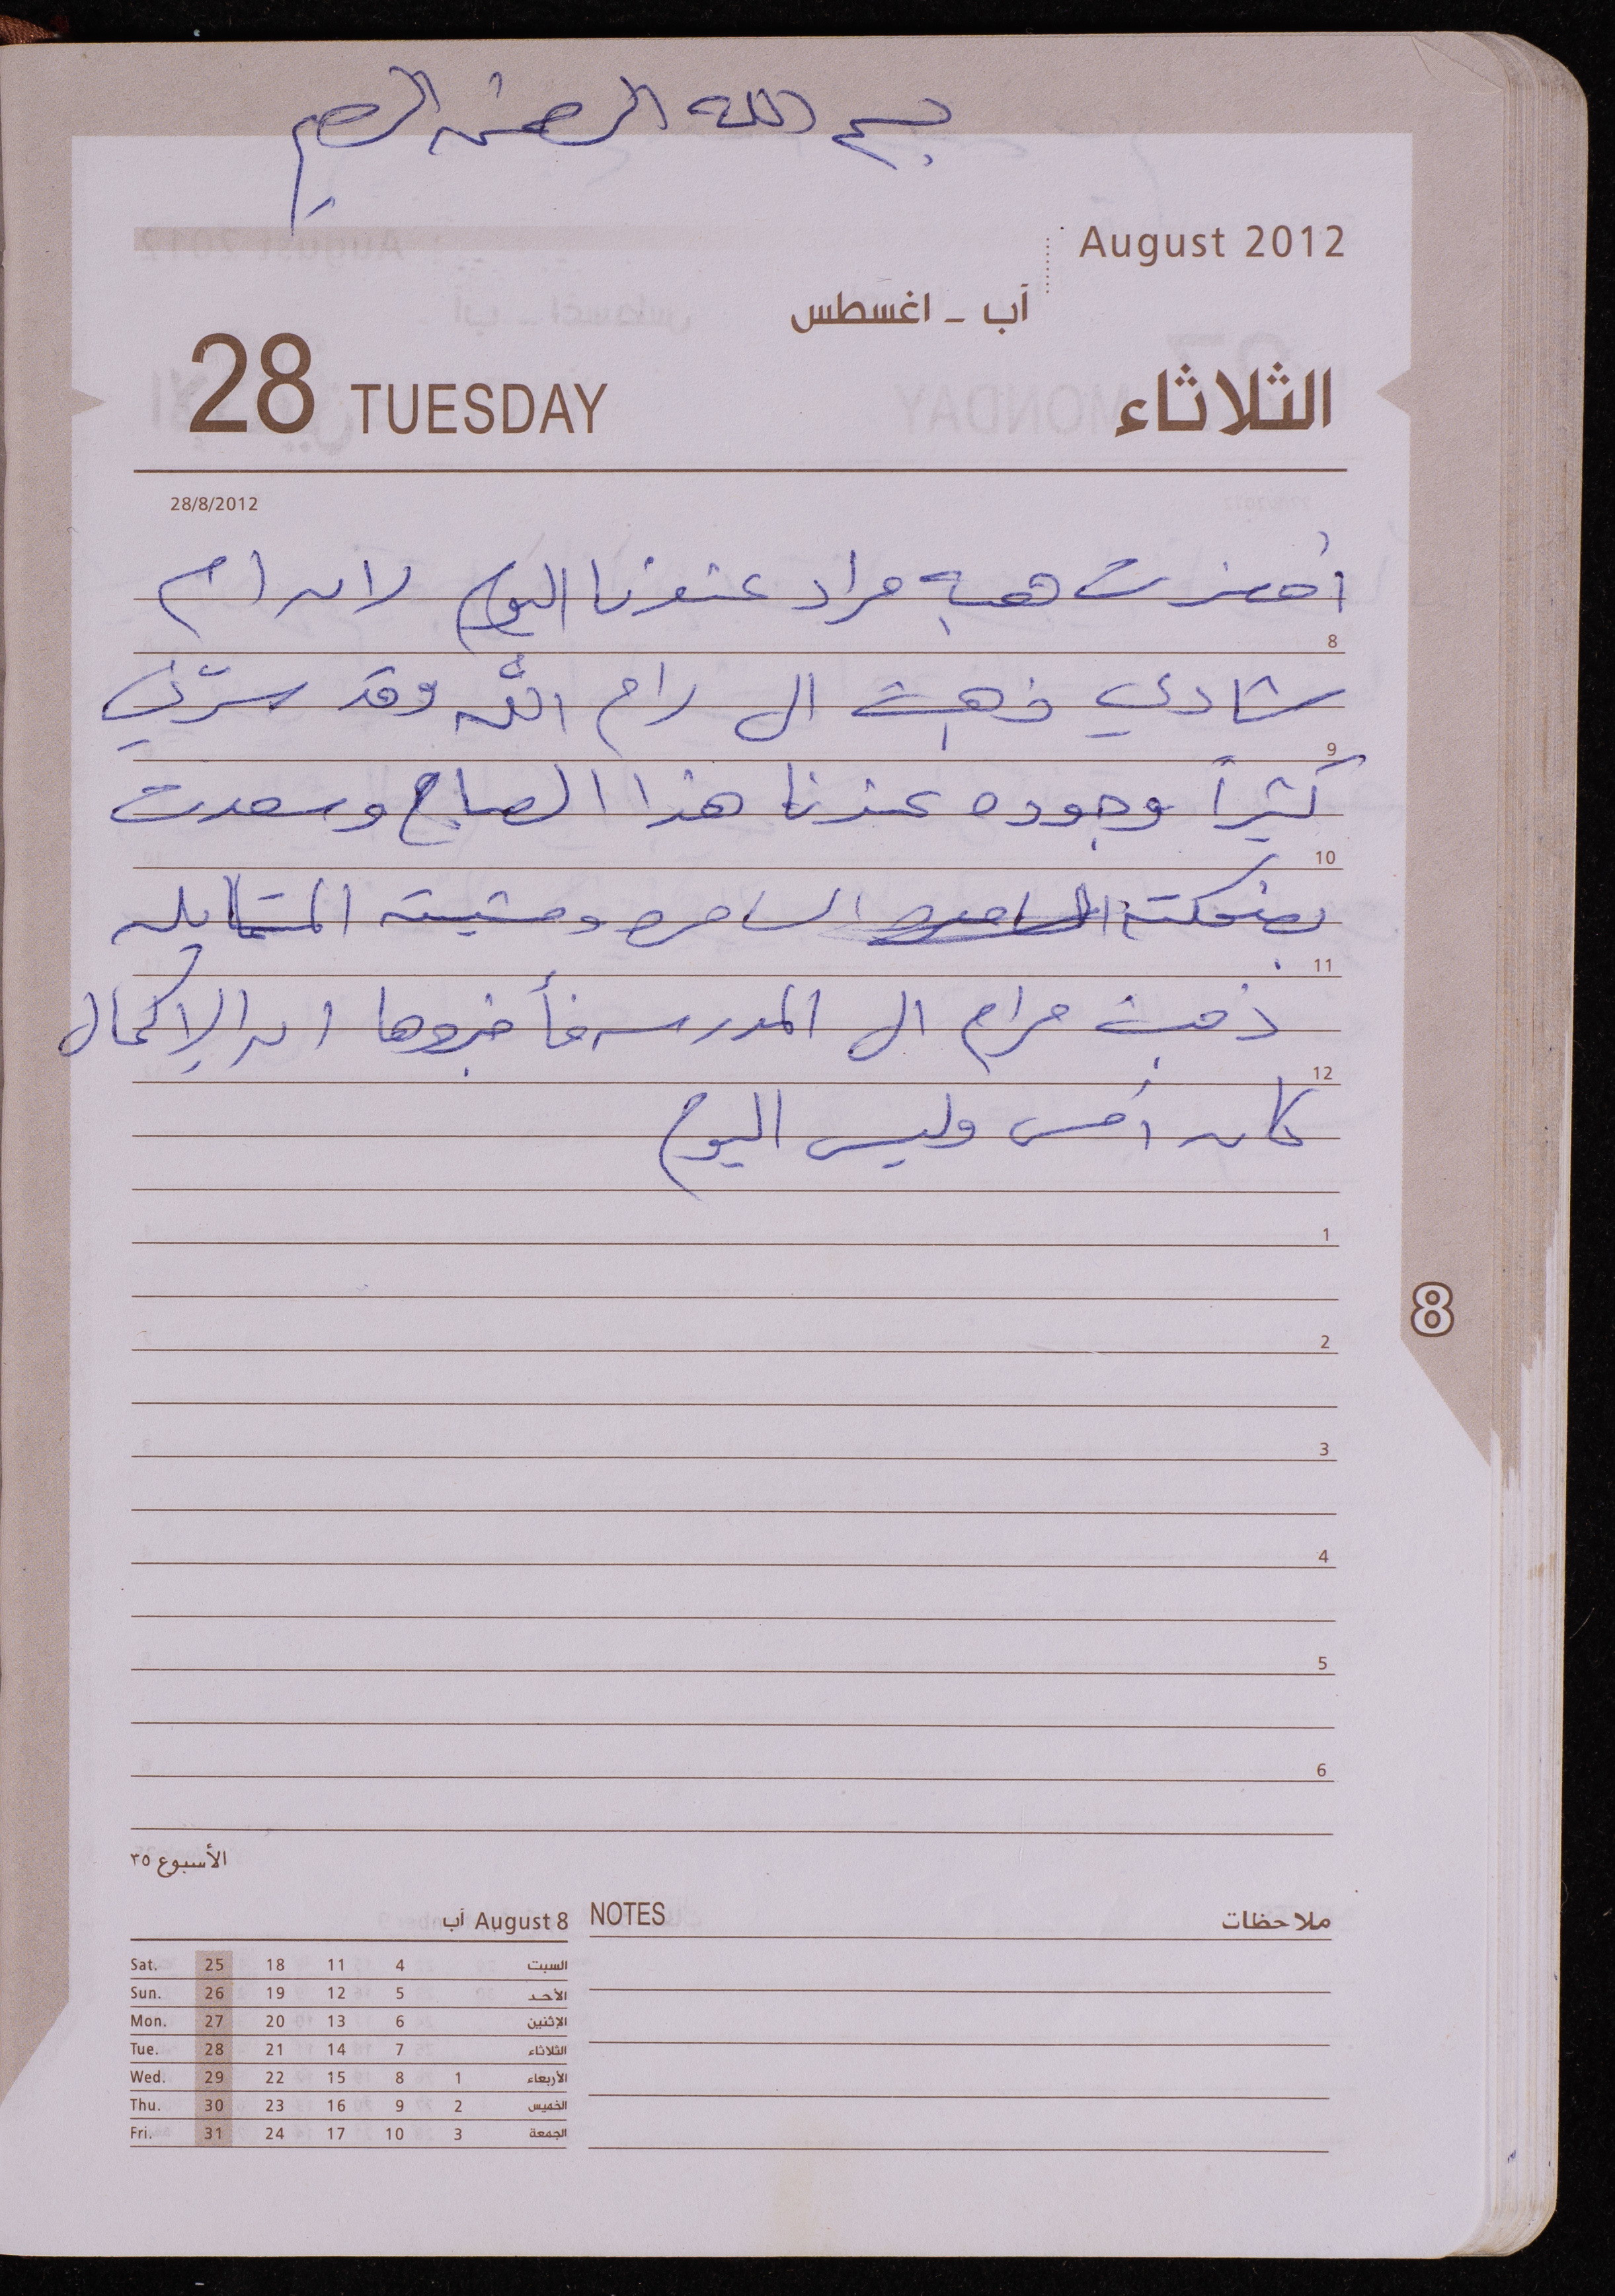 بسم الله الرحمن الرحيم
August 2012
آب - اغسطس
28 TUESDAY الثلاثاء
28/8/2012
أحضرت هبه مراد عندنا اليوم لان ام
8
شادي ذهبت الى رام الله وقد سرّني
9
كثيراً وجوده عندنا هذا الصباح وسعدت
10
بضحكته الساحره ومشيته المتمايله
11
ذهبت مرام الى المدرسه فأخبروها ان الإكمال
12
كان أمس وليس اليوم
1
2
3
4
5
6
8
الأسبوع ٣٥
آب August 8
Sat. 25 18 11 4 السبت
Sun. 26 19 12 5 الأحد
Mon. 27 20 13 6 الإثنين
Tue. 28 21 14 7 الثلاثاء
Wed. 29 22 15 8 1 الأربعاء
Thu. 30 23 16 9 2 الخميس
Fri. 31 24 17 10 3 الجمعة
NOTES ملاحظات